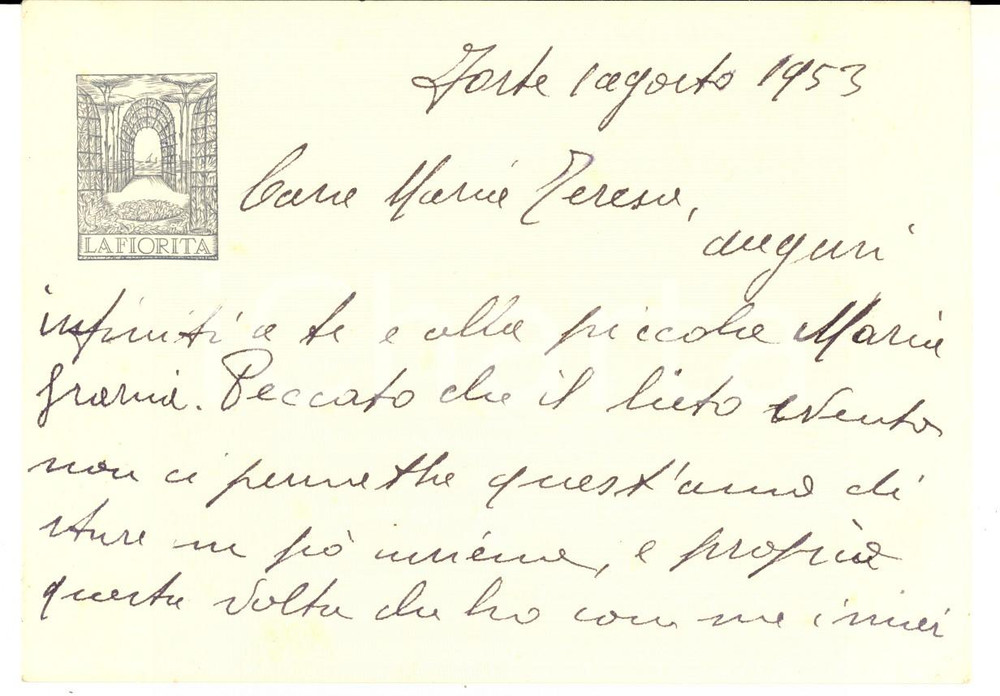 Forte 1 agosto 1953
LA FIORITA
Cara Maria Teresa,
auguri
infiniti a te e alla piccola Maria
Grazia. Peccato che il lieto evento
non ci permette quest'anno di
stare un pò insieme, e proprio
questa volta che ho con me i miei